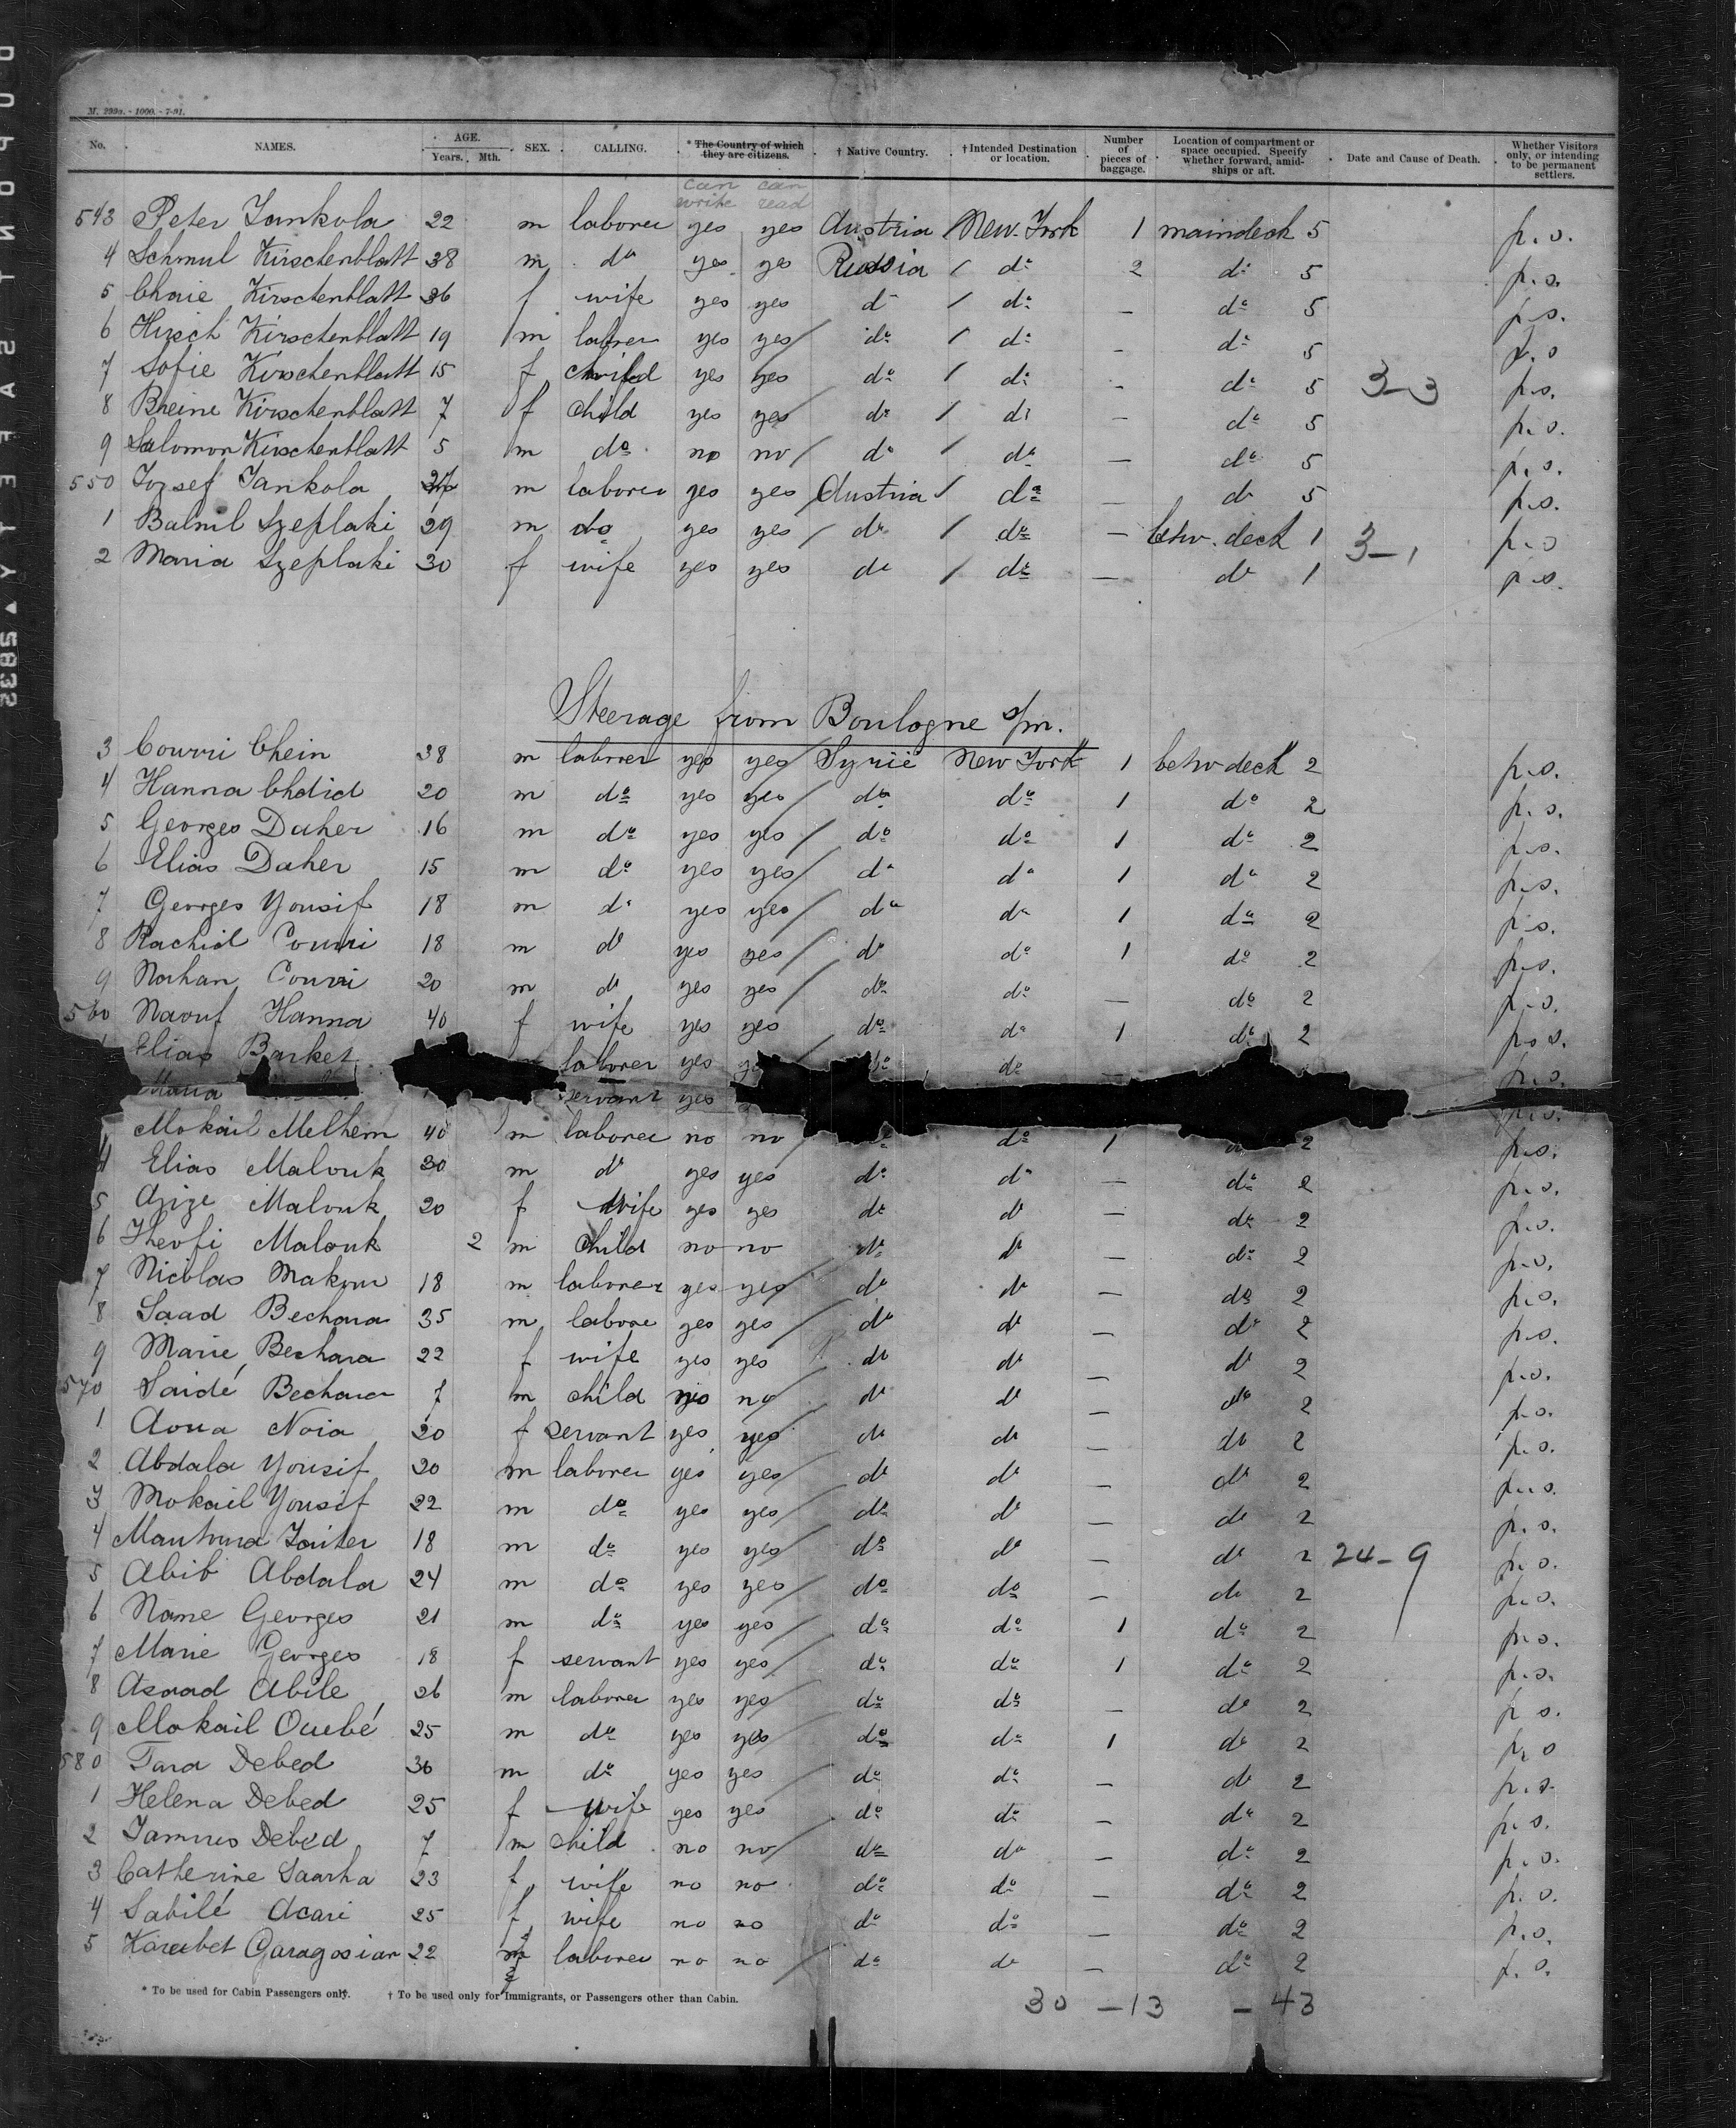 M. 299a. - 1000. - 7-91.
No. NAMES. AGE. Years. Mth. SEX. CALLING. * The Country of which they are citizens. † Native Country. † Intended Destination or location. Number of pieces of baggage. Location of compartment or space occupied. Specify whether forward, amidships or aft. Date and Cause of Death. Whether Visitors only, or intending to be permanent settlers.
can can
write read
543 Peter Jankola 22 m laborer yes yes Austria New-York 1 maindeck 5 p.s.
4 Schmul Kirschenblatt 38 m do yes yes Russia do 2 do 5 p.s.
5 Chaie Kirschenblatt 36 f wife yes yes do do — do 5 p.s.
6 Hirsch Kirschenblatt 19 m laborer yes yes do do — do 5 p.s
7 Sofie Kirschenblatt 15 f child yes yes do do — do 5 3-3 p.s.
8 Breine Kirschenblatt 7 f child yes yes do do — do 5 p.s.
9 Salomon Kirschenblatt 5 m do no no do do — do 5 p.s.
550 Jozsef Jankola m laborer yes yes Austria do — do 5 p.s.
1 Szeplaki 29 m do yes yes do do — betw. deck 1 3-1 p.s
2 Maria Szeplaki 30 f wife yes yes do do — do 1 p.s.
Steerage from Boulogne s/m.
3 Couvri Chein 38 m laborer yes yes Syrië New York 1 betw deck 2 p.s.
4 Hanna Chdid 20 m do yes yes do do 1 do 2 p.s.
5 Georges Daher 16 m do yes yes do do 1 do 2 p.s.
6 Elias Daher 15 m do yes yes do do 1 do 2 p.s.
7 Georges Yousif 18 m do yes yes do do 1 do 2 p.s.
8 Rachid Couvri 18 m do yes yes do do 1 do 2 p.s.
9 Nahan Couvri 20 m do yes yes do do — do 2 p.s.
560 Naouf Hanna 40 f wife yes yes do do 1 do 2 p.s.
Elias Barket laborer yes do do p.s.
Maria servant yes p.s.
Mokail Melhem 40 m laborer no no do 1 do 2 p.s.
4 Elias Malouk 30 m do yes yes do do — do 2 p.s.
5 Azize Malouk 20 f wife yes yes do do — do 2 p.s.
6 Theofi Malouk 2 m child no no do do — do 2 p.s.
7 Nicolas 18 m laborer yes yes do do — do 2 p.s.
8 Saad Bechara 35 m laborer yes yes do do — do 2 p.s.
9 Marie Bechara 22 f wife yes yes do do — do 2 p.s.
570 Saidé Bechara 7 m child no no do do — do 2 p.s.
1 Aoua Noia 20 f servant yes yes do do — do 2 p.s.
2 Abdala Yousif 20 m laborer yes yes do do — do 2 p.s.
3 Mokail Yousif 22 m do yes yes do do — do 2 p.s.
4 18 m do yes yes do do — do 2 24-9 p.s.
5 Abib Abdala 24 m do yes yes do do — do 2 p.s.
6 Name Georges 21 m do yes yes do do 1 do 2 p.s.
7 Marie Georges 18 f servant yes yes do do 1 do 2 p.s.
8 Asaad Abile 26 m laborer yes yes do do — do 2 p.s.
9 Mokail Ouebé 25 m do yes yes do do 1 do 2 p.s
580 Tara Debed 30 m do yes yes do do — do 2 p.s.
1 Helena Debed 25 f wife yes yes do do — do 2 p.s.
2 Debed 7 m child no no do do — do 2 p.s.
3 Catherine Saarha 23 f wife no no do do — do 2 p.s.
4 Sabilé Acari 25 f wife no no do do — do 2 p.s.
5 Karabet Garagosian 22 m laborer no no do do — do 2 p.s.
* To be used for Cabin Passengers only. † To be used only for Immigrants, or Passengers other than Cabin.
30 — 13 — 43